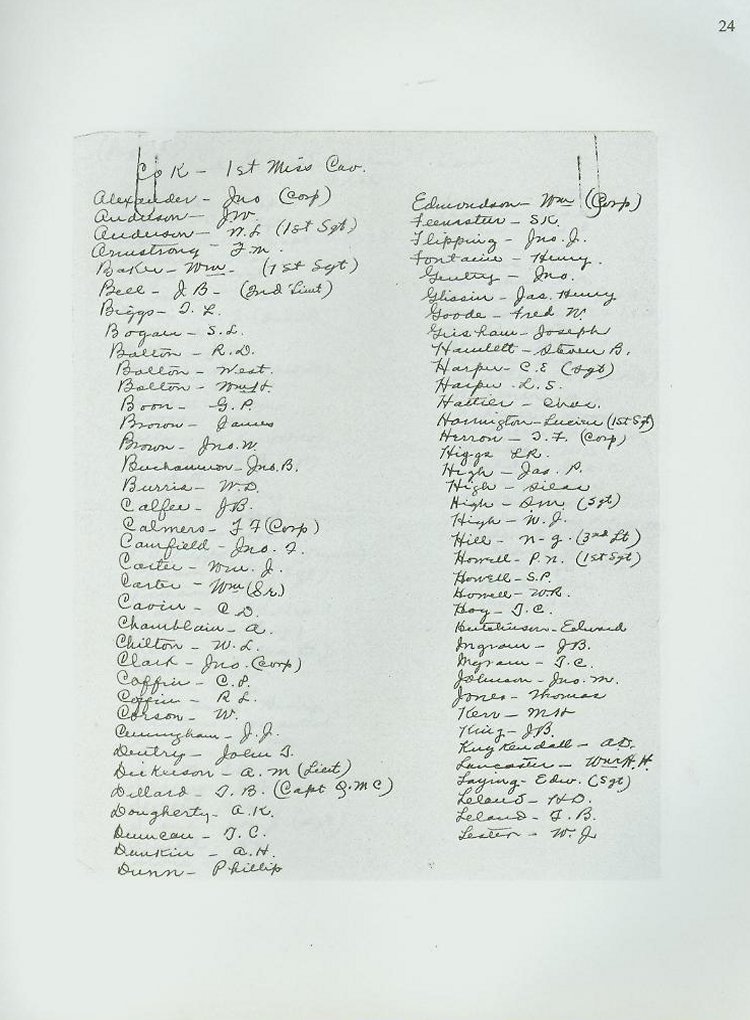 24
Co K - 1st Miss Cav.
Alexander - Jno (Corp)
Anderson - JW.
Anderson - W.L (1st Sgt)
Armstrong - F.M.
Baker - Wm. (1st Sgt)
Bell - J B - (2nd Lieut)
Biggs - T. L.
Bogan - S.L.
Bolton - R.D.
Bolton - West.
Bolton - Wm H.
Boon - G.P.
Brown - James
Brown - Jno. W.
Buchannon - Jno. B.
Burris - W.D.
Calfee - JB.
Calmers - F F (Corp)
Camfield - Jno. F.
Carter - Wm. J.
Carter - Wm (Sr)
Cavin - C.D.
Chamblain - A.
Chilton - W.L.
Clark - Jno. (Corp)
Coffin - C.P.
Coffin - R L.
Corson - W.
Cunningham - J.J.
Dentry - John T.
Dickerson - A. M (Lieut)
Dillard - T. B. (Capt Q.M C)
Dougherty - A.K.
Duncan - T. C.
Dunkin - A.H.
Dunn - Phillip
Edmondson - Wm (Corp)
Feemster - S.K.
Flipping - Jno. J.
Fontaine - Henry.
Gentry - Jno.
Glissin - Jas. Henry
Goode - Fred W.
Grisham - Joseph
Hamlett - Steven B.
Harper - C.E (Sgt)
Harper - L. S.
Hattier - Chas.
Harrington - Lucien (1st Sgt)
Herron - T. F. (Corp)
Higgs L.R.
High - Jas. P.
High - Silas
High - (Sgt)
High - W. J.
Hill - N - G. (3rd Lt)
Howell - P. N. (1st Sgt)
Howell - S.P.
Howell - WR.
Hoy - T. C.
Hutchinson - Edward
Ingram - JB.
Ingram - T. C.
Johnson - Jno. M.
Jones - Thomas
Kerr - M H
King - JB.
Kuykendall - A.D.
Lancaster - Wm H.H.
Laying - Edw. (Sgt)
Leland - H D.
Leland - T. B.
Lester - W. J